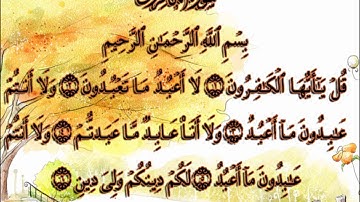 بِسْمِ ٱللَّهِ ٱلرَّحْمَٰنِ ٱلرَّحِيمِ
قُلْ يَٰٓأَيُّهَا ٱلْكَٰفِرُونَ ١ لَآ أَعْبُدُ مَا تَعْبُدُونَ ٢ وَلَآ أَنتُمْ
عَٰبِدُونَ مَآ أَعْبُدُ ٣ وَلَآ أَنَا۠ عَابِدٌ مَّا عَبَدتُّمْ ٤ وَلَآ أَنتُمْ
عَٰبِدُونَ مَآ أَعْبُدُ ٥ لَكُمْ دِينُكُمْ وَلِىَ دِينِ ٦